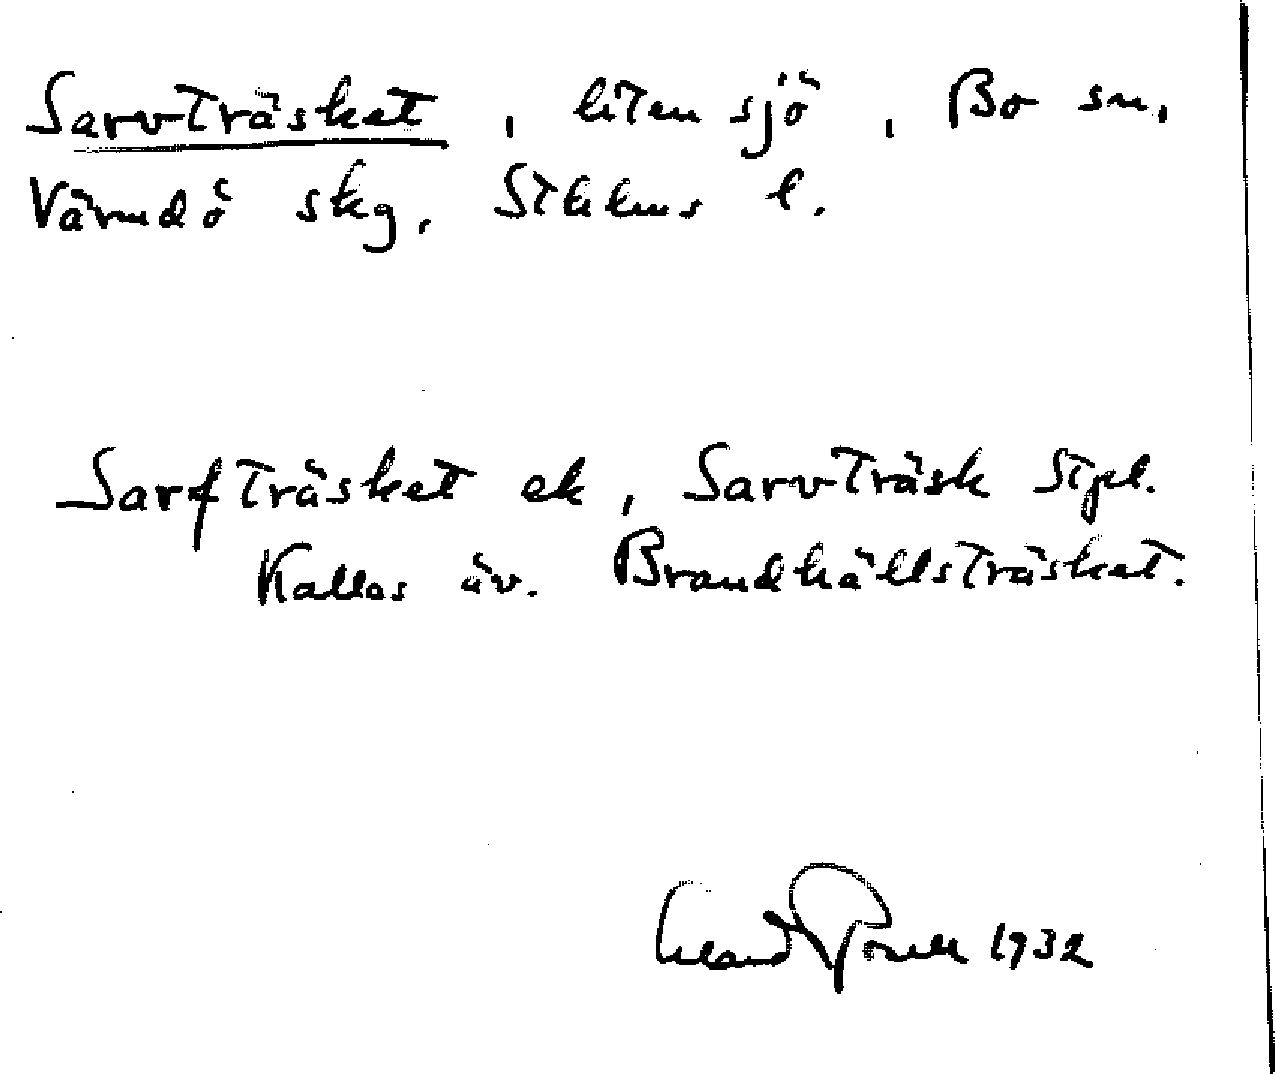 Sarvträsket, liten sjö, Bo sn,
Värmdö skg, Sthlms l.
Sarfträsket ek, Sarvträsk Stpl.
Kallas äv. Brandhällsträsket.
1932